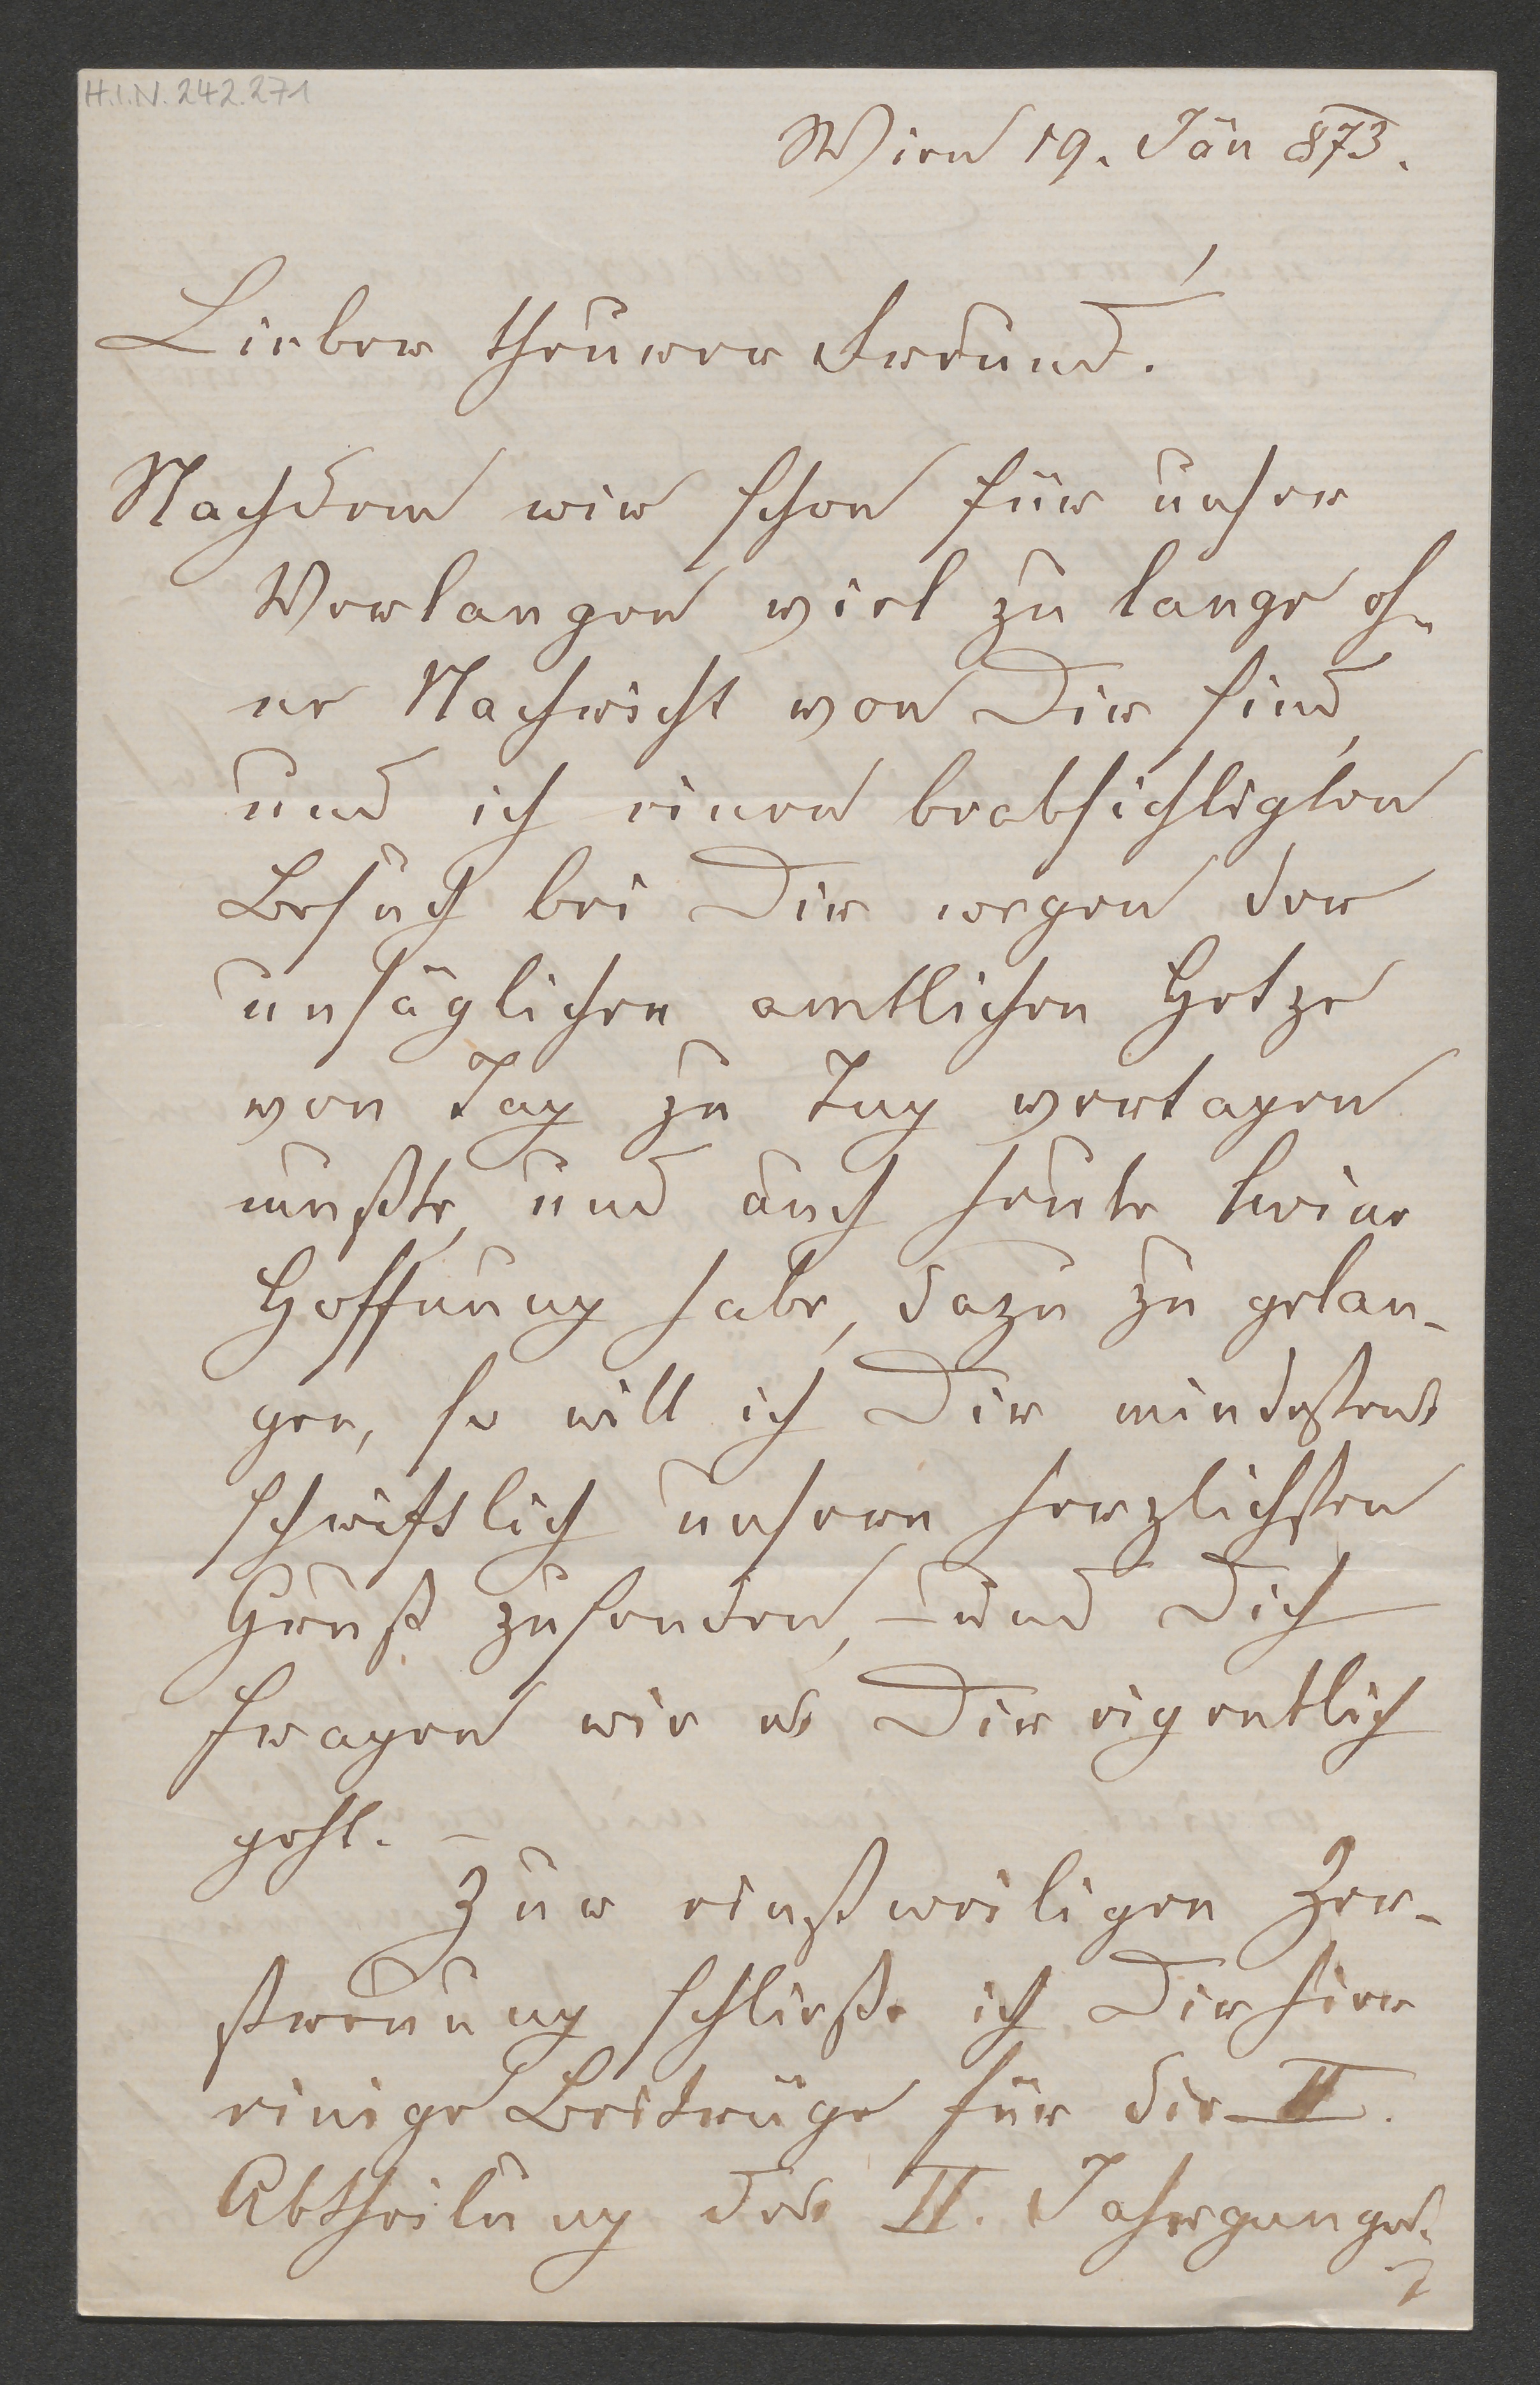 H.I.N. 242.271
Wien 19. Jän 873.
Lieber theurer Freund!
Nachdem wir schon für unser
Verlangen viel zu lange oh-
ne Nachricht von Dir sind,
und ich einen beabsichtigten
Besuch bei Dir wegen der
unsäglichen amtlichen Hetze
von Tag zu Tag vertagen
mußte, und auch heute keine
Hoffnung habe, dazu zu gelan-
gen, so will ich Dir mindestens
schriftlich unseren herzlichsten
Gruß zusenden, – und Dich
fragen wie es Dir eigentlich
geht. –
Zur einstweiligen Zer-
streuung schließe ich Dir hier
einige Beiträge für die II.
Abtheilung des II. Jahrganges